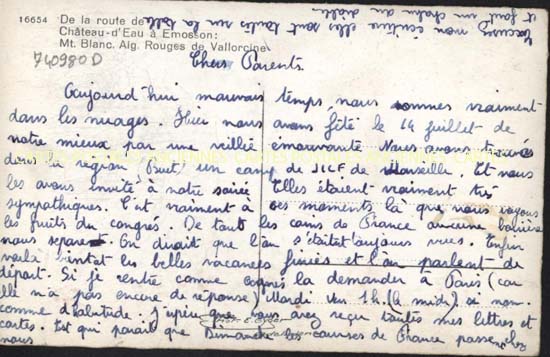 16654 De la route de
Château-d'Eau à Emosson:
Mt. Blanc. Aig. Rouges de Vallorcine
740980D
Excusez mon écriture elles sont toutes sur la table
et font un
Chers Parents.
Aujourd'hui mauvais temps, nous sommes vraiment
dans les nuages. Hier nous avons fêté le 14 juillet de
notre mieux par une veillée émouvante Nous avons trouvés
dans la région un camp de JICF de Marseille. Et nous
les avons invité à notre soirée Elles étaient vraiment très
sympathiques. C'est vraiment à ces moments là que nous voyons
les fruits du congrès. De tout les coins de France aucune barrière
nous separent. On dirait que l'on s'était toujours vues. Enfin
voilà bientot les belles vacances finies et l'on parlent de
départ. Si je rentre comme la demander à Paris (car
elle n'a pas encore de réponse) Mardi 1h. (à midi)
comme d'habitude. J'espère que vous avez reçu toutes mes lettres et
cartes. Est qui parait que Dimanche les courses de France passe chez
nous